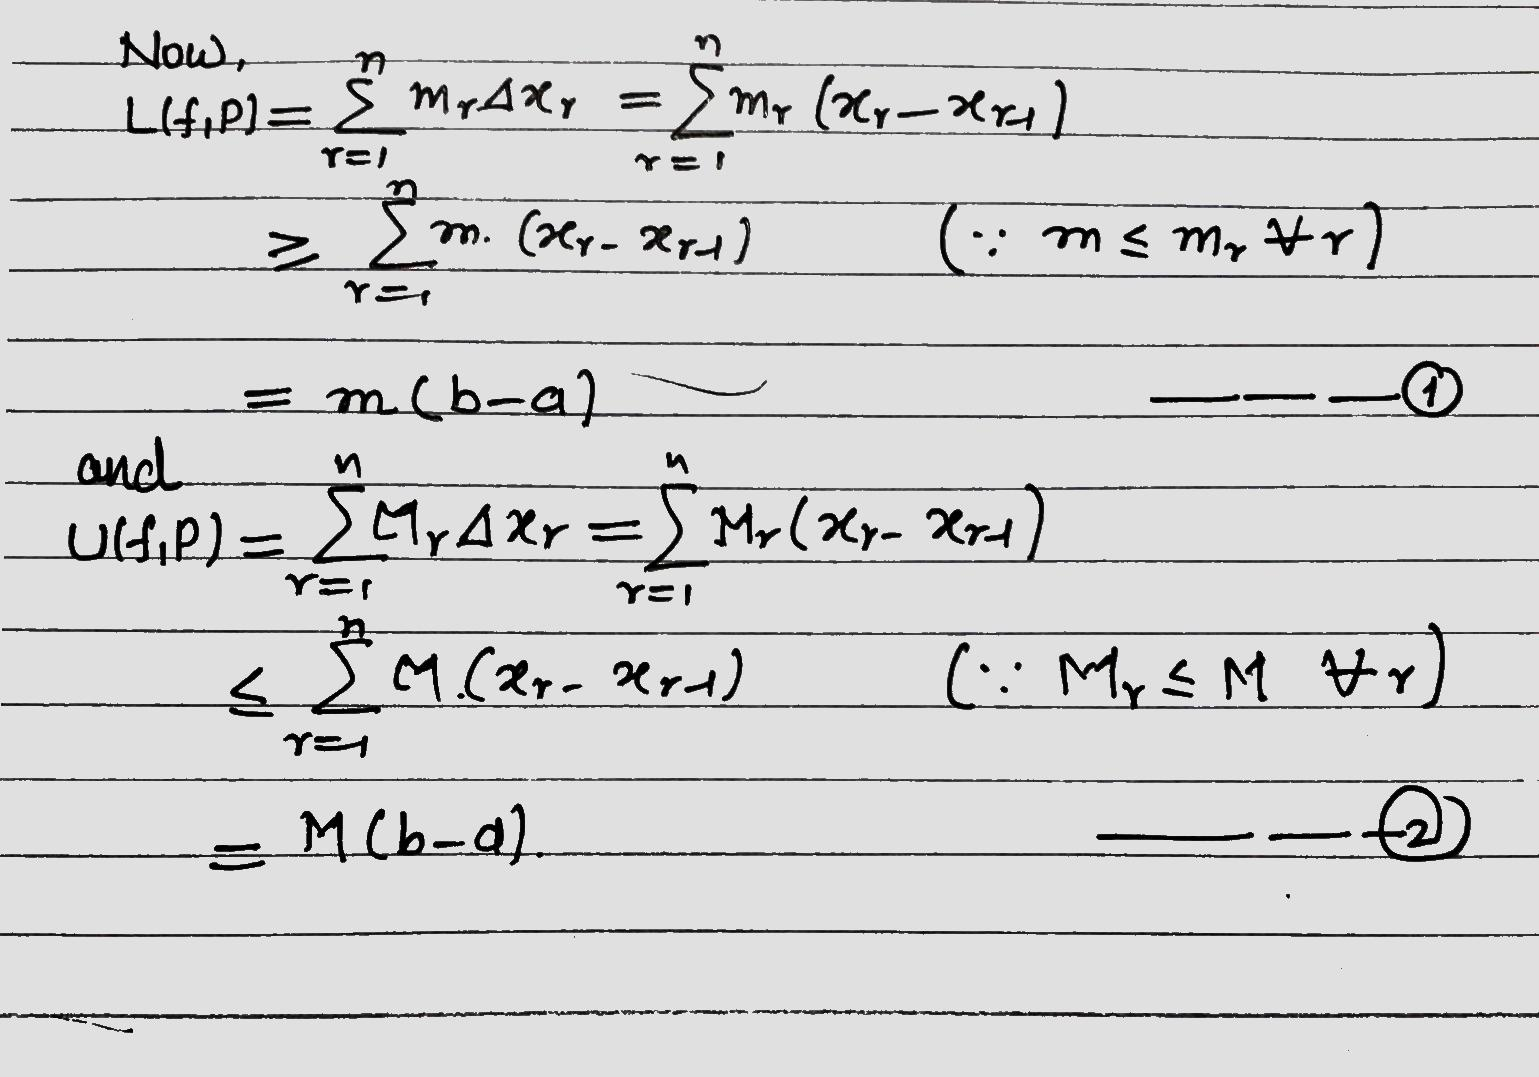 Now,
L(f,P) = ∑_{r=1}^{n} m_r Δx_r = ∑_{r=1}^{n} m_r (x_r - x_{r-1})
≥ ∑_{r=1}^{n} m. (x_r - x_{r-1}) (∵ m ≤ m_r ∀ r)
= m (b-a) — — — ①
and
U(f,P) = ∑_{r=1}^{n} M_r Δx_r = ∑_{r=1}^{n} M_r (x_r - x_{r-1})
≤ ∑_{r=1}^{n} M. (x_r - x_{r-1}) (∵ M_r ≤ M ∀ r)
= M (b-a). — — — ②